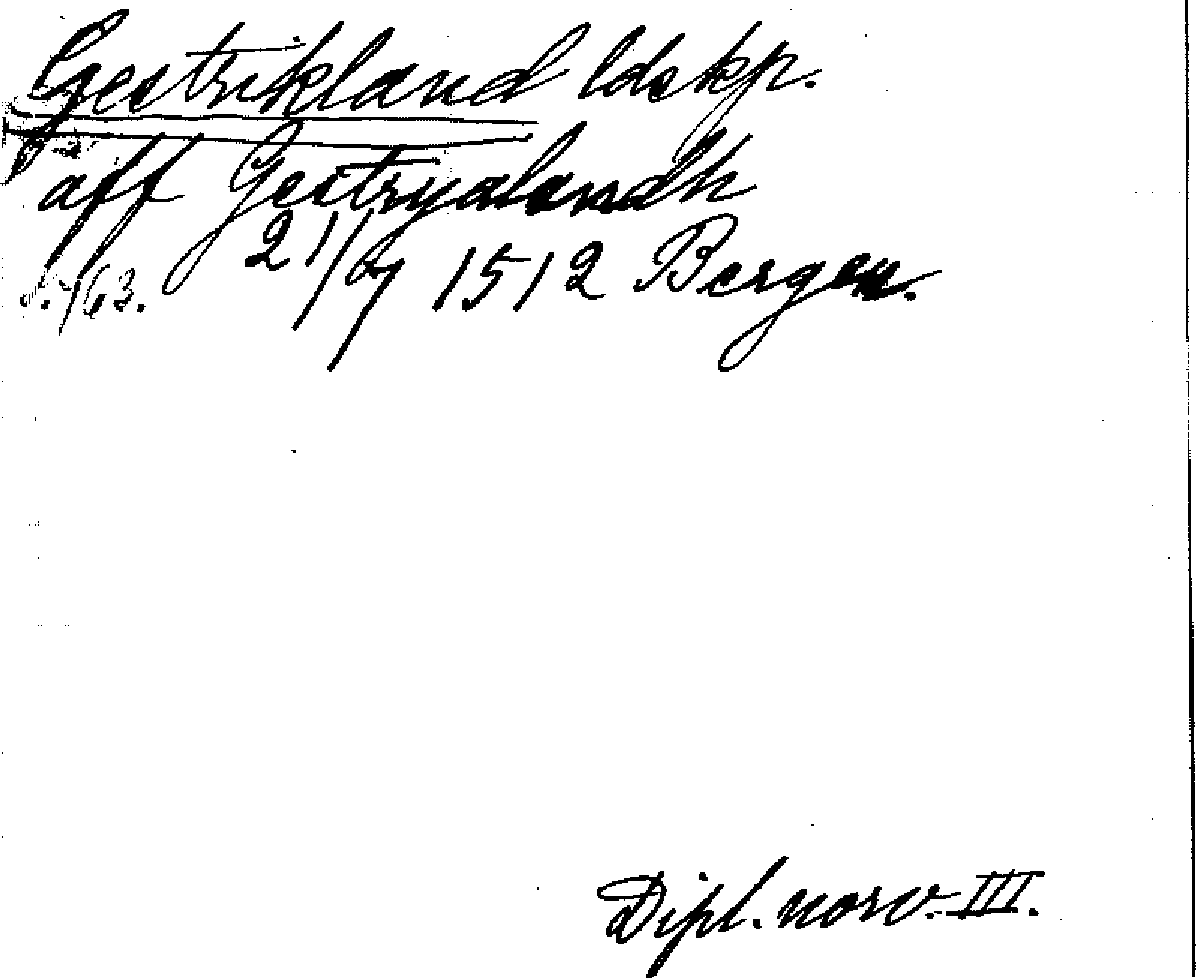 Gestrikland ldskp.
aff Gestryalandh
21/7 1512 Bergen.
s. 763.
Dipl. norv. III.